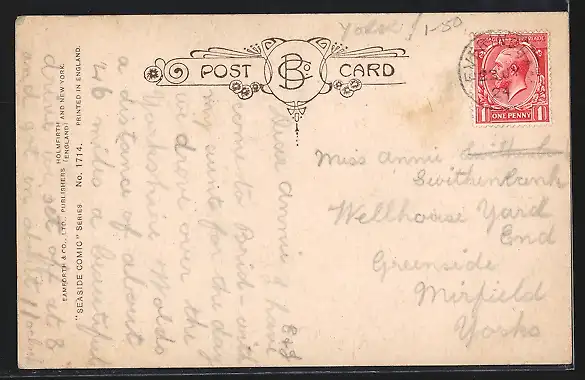 Yorks / 1-50
POST CARD
B & Co
ONE PENNY
1 1
Miss Annie
Swithenbank
Wellhouse Yard
End
Greenside
Mirfield
Yorks
Dear Annie I have
to Brid with
my suite for the day
we drove over the
Wolds
a distance of about
46 miles a beautiful
drive set off at 8
and
BAMFORTH & CO., LTD., PUBLISHERS HOLMFIRTH (ENGLAND) AND NEW YORK.
"SEASIDE COMIC" SERIES No. 1714. PRINTED IN ENGLAND.